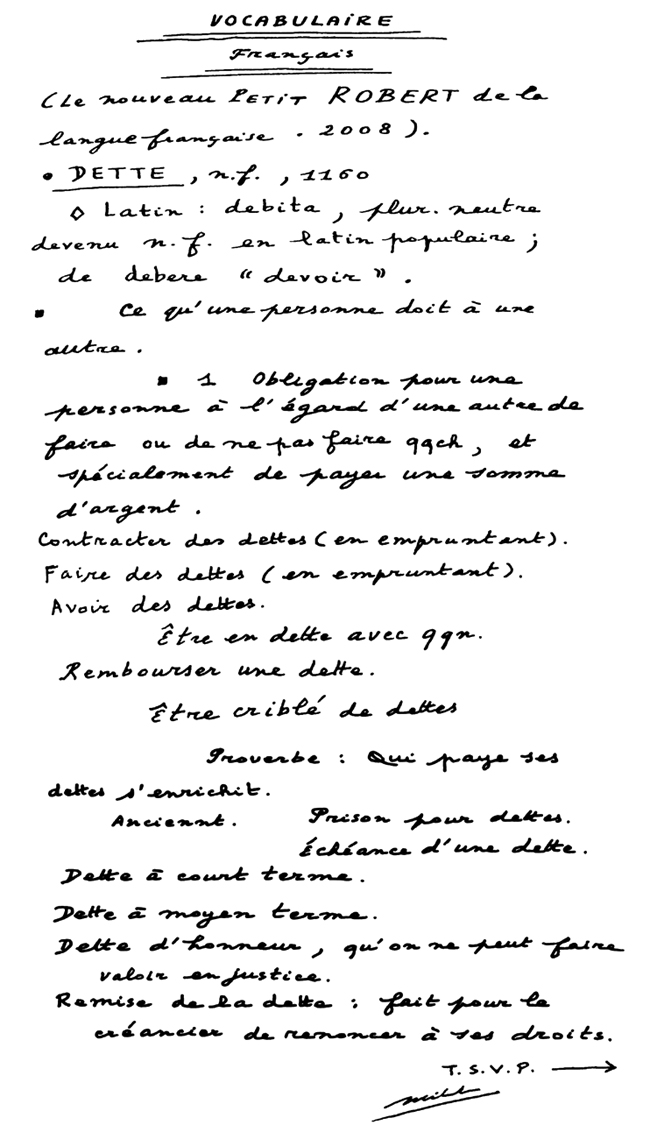 VOCABULAIRE
Français
(Le nouveau PETIT ROBERT de la
langue française . 2008).
• DETTE , n.f. , 1160
◊ Latin : debita , plur. neutre
devenu n.f. en latin populaire ;
de debere " devoir " .
▪ Ce qu'une personne doit à une
autre .
▪ 1 Obligation pour une
personne à l'égard d'une autre de
faire ou de ne pas faire qqch , et
spécialement de payer une somme
d'argent .
Contracter des dettes (en empruntant).
Faire des dettes (en empruntant).
Avoir des dettes.
Être en dette avec qqn.
Rembourser une dette.
Être criblé de dettes
Proverbe : Qui paye ses
dettes s'enrichit.
Anciennt. Prison pour dettes.
Échéance d'une dette.
Dette à court terme.
Dette à moyen terme.
Dette d'honneur, qu'on ne peut faire
valoir en justice.
Remise de la dette : fait pour le
créancier de renoncer à ses droits.
T.S.V.P. →